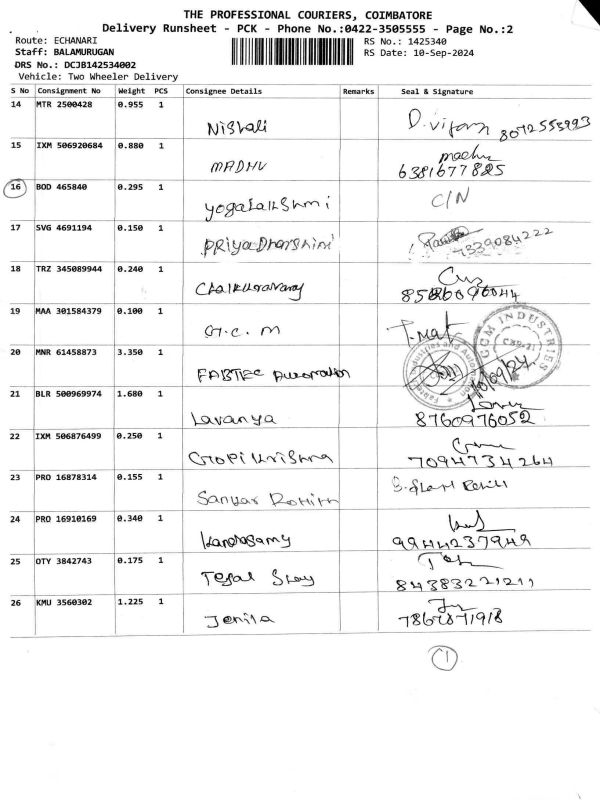 THE PROFESSIONAL COURIERS, COIMBATORE
Delivery Runsheet - PCK - Phone No.:0422-3505555 - Page No.:2
Route: ECHANARI RS No.: 1425340
Staff: BALAMURUGAN RS Date: 10-Sep-2024
DRS No.: DCJB142534002
Vehicle: Two Wheeler Delivery
S No Consignment No Weight PCS Consignee Details Remarks Seal & Signature
14 MTR 2500428 0.955 1
Nishali D. 8072553993
15 IXM 506920684 0.880 1
MADHU 6381677825
16 BOD 465840 0.295 1
yogalakshmi C/N
17 SVG 4691194 0.150 1
PRiyaDharshini 7339084222
18 TRZ 345089944 0.240 1
19 MAA 301584379 0.100 1
G.C.M
GCM INDUSTRIES
20 MNR 61458873 3.350 1
FABTEC Automation 10/09/24
21 BLR 500969974 1.680 1
Lavanya 8760976052
22 IXM 506876499 0.250 1
Gopi Krishna 7094734264
23 PRO 16878314 0.155 1
Sankar Rohith
24 PRO 16910169 0.340 1
Kandasamy 9944237949
25 OTY 3842743 0.175 1
Tejal 84383221211
26 KMU 3560302 1.225 1
Jenila